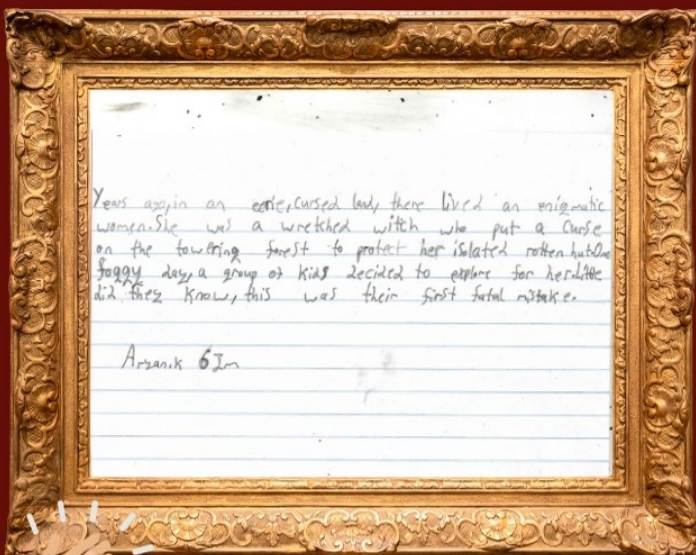 Years ago,in an eerie,cursed land, there lived an enigmatic
women.She was a wretched witch who put a curse
on the towering forest to protect her isolated rotten hut.One
foggy day,a group of kids decided to explore for her.Little
did they know,this was their first fatal mistake.
Aryan.k 6Im